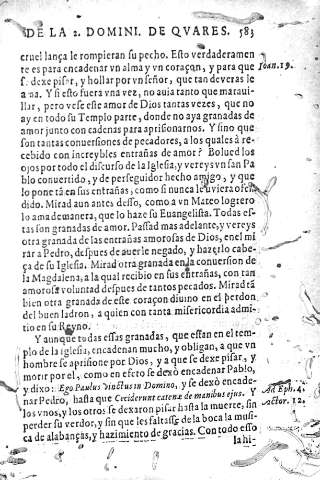 DE LA 2. DOMINI. DE QVARES. 583
cruel lança le rompieran su pecho. Esto verdaderamen
te es para encadenar vn alma y vn coraçon, y para que Ioan. 19.
se dexe pisar, y hollar por vn señor, que tan deveras le
ama. Y si esto fuera vna vez, no auia tanto que maraui-
llar, pero vese este amor de Dios tantas vezes, que no
ay en todo su Templo parte, donde no aya granadas de
amor junto con cadenas para aprisionarnos. Y sino que
son tantas conuersiones de pecadores, a los quales à re-
cebido con increybles entrañas de amor? Bolued los
ojos por todo el discurso de la Iglesia, y vereys vn san Pa
blo conuertido, y de perseguidor hecho amigo, y que
lo pone tã en sus entrañas, como si nunca le vuiera ofen
dido. Mirad aun antes desso, como a vn Mateo logrero
lo ama de manera, que lo haze su Euangelista. Todas es-
tas son granadas de amor. Passad mas adelante, y vereys
otra granada de las entrañas amorosas de Dios, en el mi
rar a Pedro, despues de auerle negado, y hazerlo cabe-
ça de su Iglesia. Mirad otra granada en la conuersion de
la Magdalena, a la qual recibio en sus entrañas, con tan
amorosa voluntad despues de tantos pecados. Mirad tã
bien otra granada de este coraçon diuino en el perdon
del buen ladron, a quien con tanta misericordia admi-
tio en su Reyno.
Y aunque todas essas granadas, que estan en el tem-
plo de la iglesia, encadenan mucho, y obligan, a que vn
hombre se aprisione por Dios, y a que se dexe pisar, y
morir por el, como en efeto se dexò encadenar Pablo,
y dixo: Ego Paulus vinctus in Domino, y se dexò encade- Ad Eph. 4.
nar Pedro, hasta que Ceciderunt catenæ de manibus ejus. Y Actor. 12.
los vnos, y los otros se dexaron pisar hasta la muerte, sin
perder su verdor, y sin que les faltasse de la boca la musi-
ca de alabanças, y hazimiento de gracias. Con todo esso
la hi-